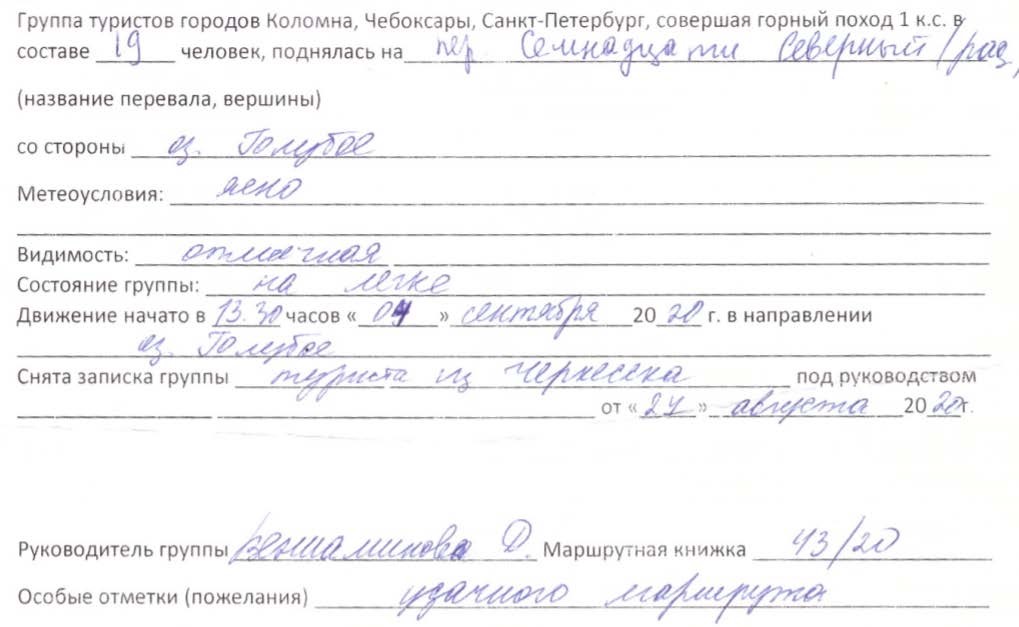 Группа туристов городов Коломна, Чебоксары, Санкт-Петербург, совершая горный поход 1 к.с. в
составе 19 человек, поднялась на пер. Семнадцати Северный (рад,
(название перевала, вершины)
со стороны оз. Голубое
Метеоусловия: ясно
Видимость: отличная
Состояние группы: на легке
Движение начато в 13.30 часов « 04 » сентября 2020 г. в направлении
оз. Голубое
Снята записка группы туриста из Черкесска под руководством
от « 24 » августа 2020г.
Руководитель группы Вениаминова Д. Маршрутная книжка 43/20
Особые отметки (пожелания) удачного маршрута